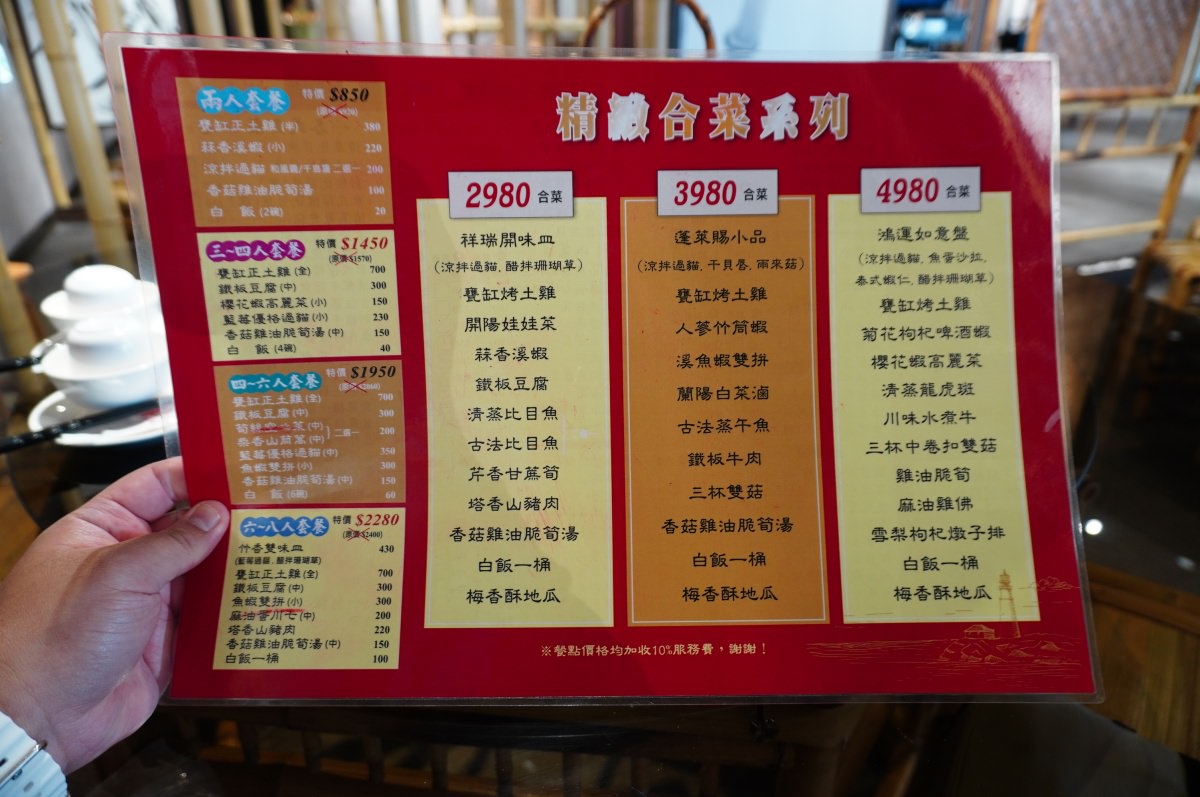 兩人套餐 特價 $850
甕缸正土雞(半) 380
蒜香溪蝦(小) 220
涼拌過貓 和風醬/千島醬 二選一 200
香菇雞油脆筍湯 100
白 飯(2碗) 20
三~四人套餐 特價 $1450
(原價$1570)
甕缸正土雞(全) 700
鐵板豆腐(中) 300
櫻花蝦高麗菜(小) 150
藍莓優格過貓(小) 230
香菇雞油脆筍湯(中) 150
白 飯(4碗) 40
四~六人套餐 特價 $1950
甕缸正土雞(全) 700
鐵板豆腐(中) 300
(中)
山茼蒿(中) 二選一 200
藍莓優格過貓(中) 350
魚蝦雙拼(小) 300
香菇雞油脆筍湯(中) 150
白 飯(6碗) 60
六~八人套餐 特價 $2280
(原價$2400)
竹香雙味皿 430
(藍莓過貓.醋拌珊瑚草)
甕缸正土雞(全) 700
鐵板豆腐(中) 300
魚蝦雙拼(小) 300
麻油 川七(中) 200
塔香山豬肉 220
香菇雞油脆筍湯(中) 150
白飯一桶 100
精緻合菜系列
2980 合菜
祥瑞開味皿
(涼拌過貓.醋拌珊瑚草)
甕缸烤土雞
開陽娃娃菜
蒜香溪蝦
鐵板豆腐
清蒸比目魚
古法比目魚
芹香甘蔗筍
塔香山豬肉
香菇雞油脆筍湯
白飯一桶
梅香酥地瓜
3980 合菜
蓬萊賜小品
(涼拌過貓.干貝唇.兩來菇)
甕缸烤土雞
人蔘竹筒蝦
溪魚蝦雙拼
蘭陽白菜滷
古法蒸午魚
鐵板牛肉
三杯雙菇
香菇雞油脆筍湯
白飯一桶
梅香酥地瓜
4980 合菜
鴻運如意盤
(涼拌過貓.魚蛋沙拉.
泰式蝦仁.醋拌珊瑚草)
甕缸烤土雞
菊花枸杞啤酒蝦
櫻花蝦高麗菜
清蒸龍虎斑
川味水煮牛
三杯中卷扣雙菇
雞油脆筍
麻油雞佛
雪梨枸杞燉子排
白飯一桶
梅香酥地瓜
※餐點價格均加收10%服務費，謝謝！